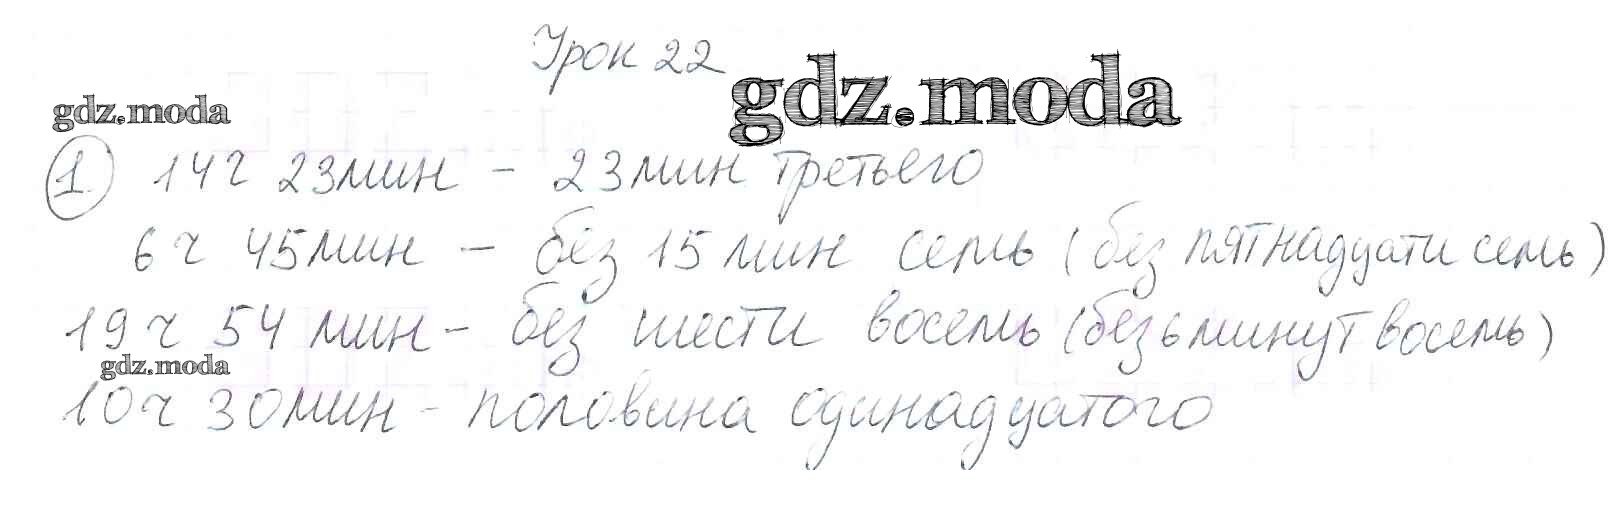 Урок 22
gdz.moda
gdz.moda
1 14ч 23мин - 23мин третьего
6ч 45мин - без 15 мин семь (без пятнадцати семь)
19ч 54 мин - без шести восемь (без 6 минут восемь)
gdz.moda
10ч 30мин - половина одинадцатого